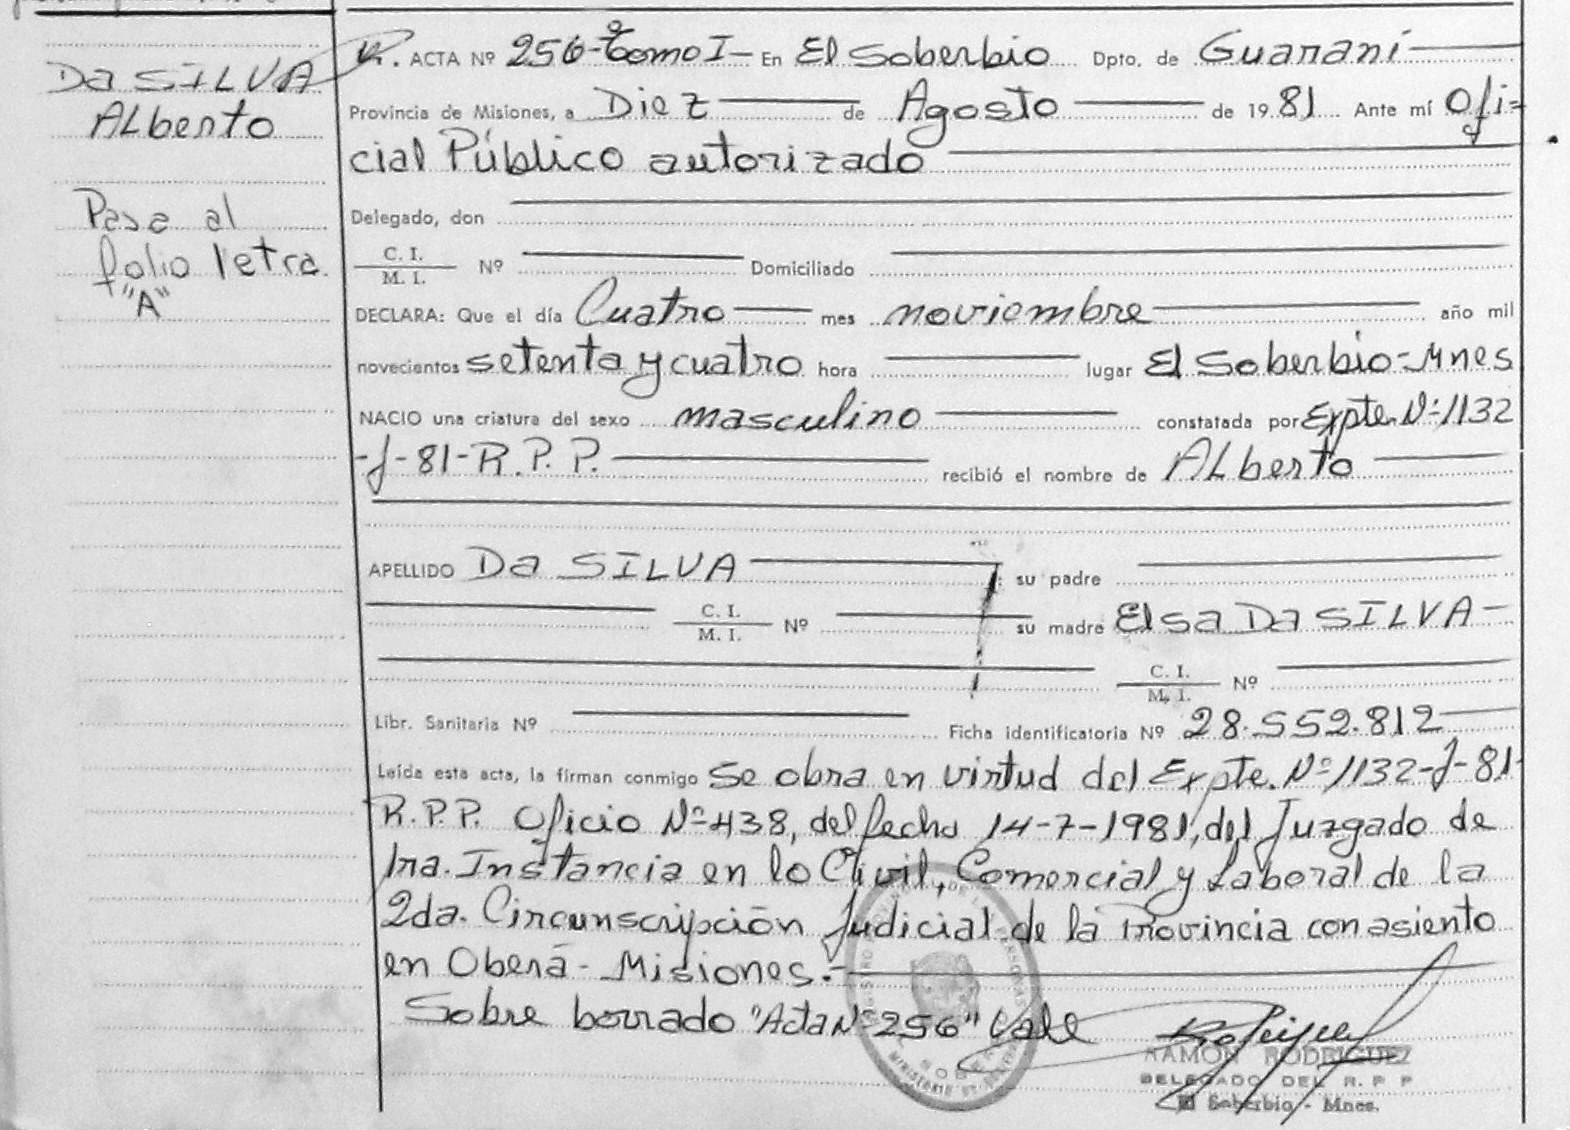 Da SILVA
Alberto
Pasa al
folio letra
"A"
ACTA Nº 256-Tomo I- En El Soberbio Dpto. de Guaraní
Provincia de Misiones, a Diez de Agosto de 1981 Ante mí Ofi=
cial Público autorizado
Delegado, don
C. I.
M. I. Nº Domiciliado
DECLARA: Que el día Cuatro mes noviembre año mil
novecientos setenta y cuatro hora lugar El Soberbio-Mnes
NACIO una criatura del sexo masculino constatada por Expte. Nº 1132
-J-81-R.P.P. recibió el nombre de Alberto
APELLIDO Da SILVA su padre
C. I.
M. I. Nº su madre Elsa Da SILVA-
C. I.
M. I. Nº
Libr. Sanitaria Nº Ficha identificatoria Nº 28.552.812
Leída esta acta, la firman conmigo Se obra en virtud del Expte. Nº 1132-J-81-
R.P.P. Oficio Nº 438, del fecha 14-7-1981, del Juzgado de
1ra. Instancia en lo Civil, Comercial y Laboral de la
2da. Circunscripción Judicial de la Provincia con asiento
en Oberá - Misiones.-
Sobre borrado "Acta Nº 256" Vale
RAMON RODRIGUEZ
DELEGADO DEL R. P P
El Soberbio - Mnes.